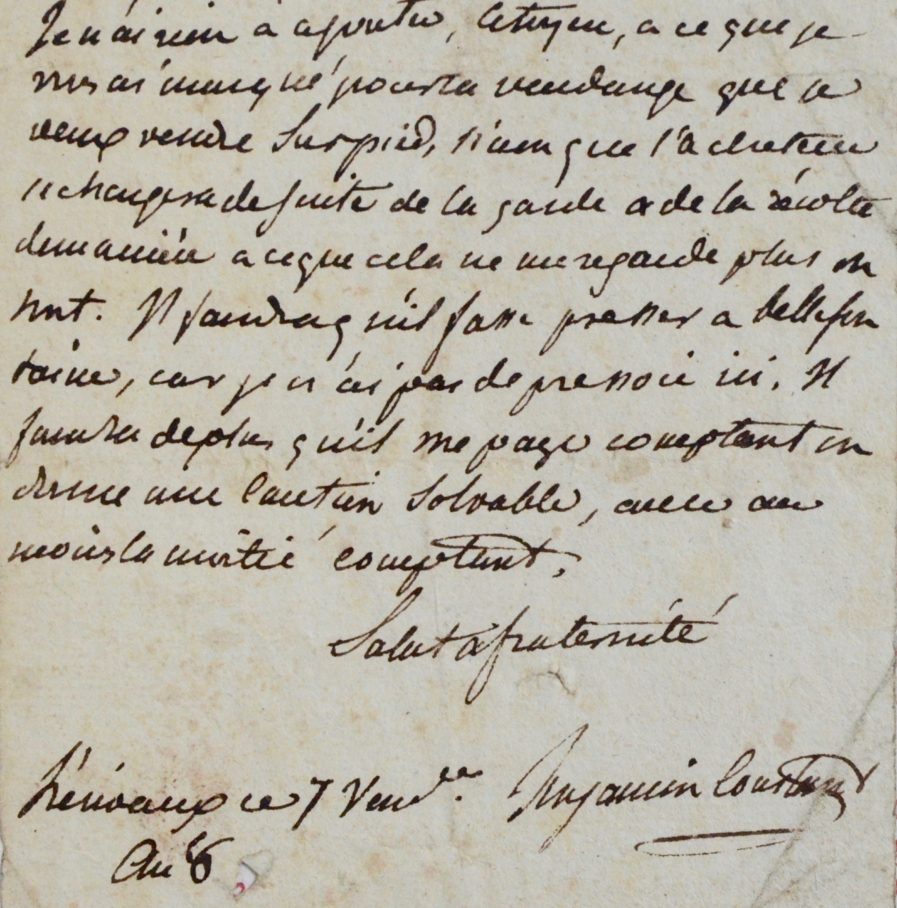 Je n'ai rien à ajouter, Citoyen, a ce que je
vous ai marqué pour la vendange que je
veux vendre sur pied, sinon que l'acheteur
se chargera de suite de la garde & de la récolte
de maniére a ce que cela ne me regarde plus en
rien. Il faudra qu'il fasse presser a bellefon
taine, car je n'ai pas de pressoir ici. Il
faudra de plus qu'il me paye comptant ou
donne une Caution Solvable, avec au
moins la moitié comptant.
Salut & fraternité
Hérivaux ce 7 Vend.re Benjamin Constant
An 8